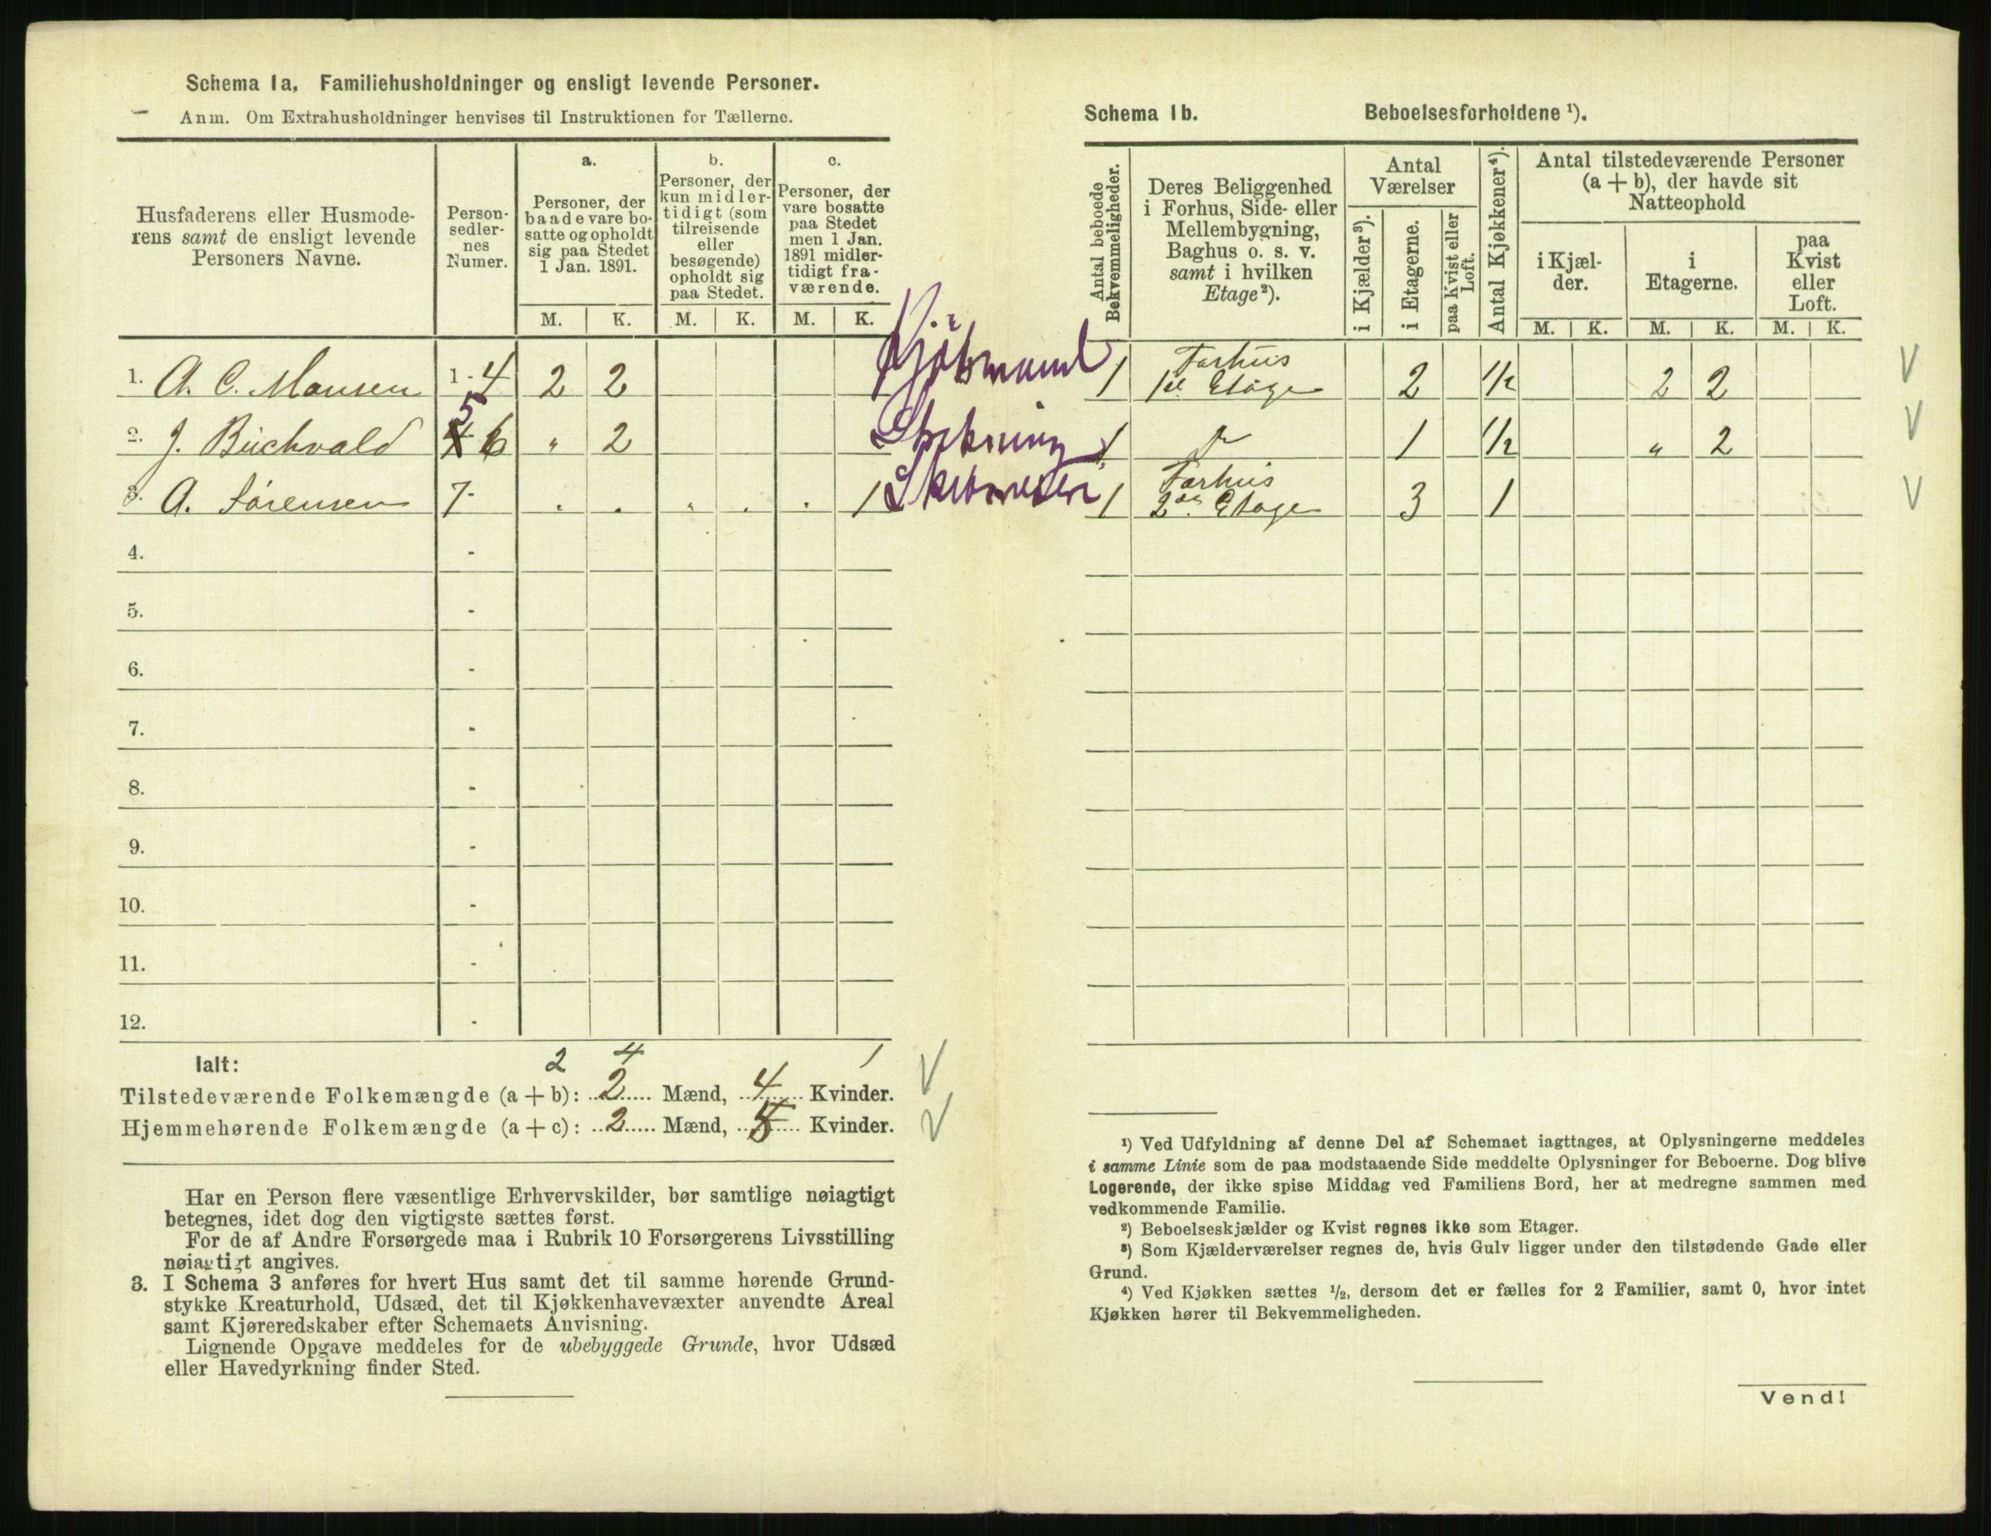 Schema 1a, Familiehusholdninger og ensligt levende Personer.
Anm. Om Extrahusholdninger henvises til Instruktionen for Tællerne.
Husfaderens eller Husmoderens samt de ensligt levende Personers Navne.
Personsedlernes Numer.
a.
Personer, der baade vare bosatte og opholdt sig paa Stedet 1 Jan. 1891.
b.
Personer, der kun midlertidigt (som tilreisende eller besøgende) opholdt sig paa Stedet.
c.
Personer, der vare bosatte paa Stedet men 1 Jan. 1891 midlertidigt fraværende.
M. K. M. K. M. K.
1. A. C. Monsen 1-4 2 2 Kjöbmand
2. J. Buchvald 5-6 " 2
3. A. Sørensen 7- . . " . . 1
4. -
5. -
6. -
7. -
8. -
9. -
10. -
11. -
12. -
Ialt: 2 4 1
Tilstedeværende Folkemængde (a + b): 2 Mænd, 4 Kvinder.
Hjemmehørende Folkemængde (a + c): 2 Mænd, 5 Kvinder.
Har en Person flere væsentlige Erhvervskilder, bør samtlige nøiagtigt
betegnes, idet dog den vigtigste sættes først.
For de af Andre Forsørgede maa i Rubrik 10 Forsørgerens Livsstilling
nøiagtigt angives.
3. I Schema 3 anføres for hvert Hus samt det til samme hørende Grund-
stykke Kreaturhold, Udsæd, det til Kjøkkenhavevæxter anvendte Areal
samt Kjøreredskaber efter Schemaets Anvisning.
Lignende Opgave meddeles for de ubebyggede Grunde, hvor Udsæd
eller Havedyrkning finder Sted.
Schema 1b. Beboelsesforholdene ¹).
Antal beboede Bekvemmeligheder.
Deres Beliggenhed i Forhus, Side- eller Mellembygning, Baghus o. s. v. samt i hvilken Etage²).
Antal Værelser
i Kjælder³).
i Etagerne.
paa Kvist eller Loft.
Antal Kjøkkener⁴).
Antal tilstedeværende Personer (a + b), der havde sit Natteophold
i Kjælder.
i Etagerne.
paa Kvist eller Loft.
M. K. M. K. M. K.
1 Forhus 1ste Etage 2 1/2 2 2
1 1 1/2 " 2
1 Forhus 2den Etage 3 1
¹) Ved Udfyldning af denne Del af Schemaet iagttages, at Oplysningerne meddeles
i samme Linie som de paa modstaaende Side meddelte Oplysninger for Beboerne. Dog blive
Logerende, der ikke spise Middag ved Familiens Bord, her at medregne sammen med
vedkommende Familie.
²) Beboelseskjælder og Kvist regnes ikke som Etager.
³) Som Kjælderværelser regnes de, hvis Gulv ligger under den tilstødende Gade eller
Grund.
⁴) Ved Kjøkken sættes ½, dersom det er fælles for 2 Familier, samt 0, hvor intet
Kjøkken hører til Bekvemmeligheden.
Vend!